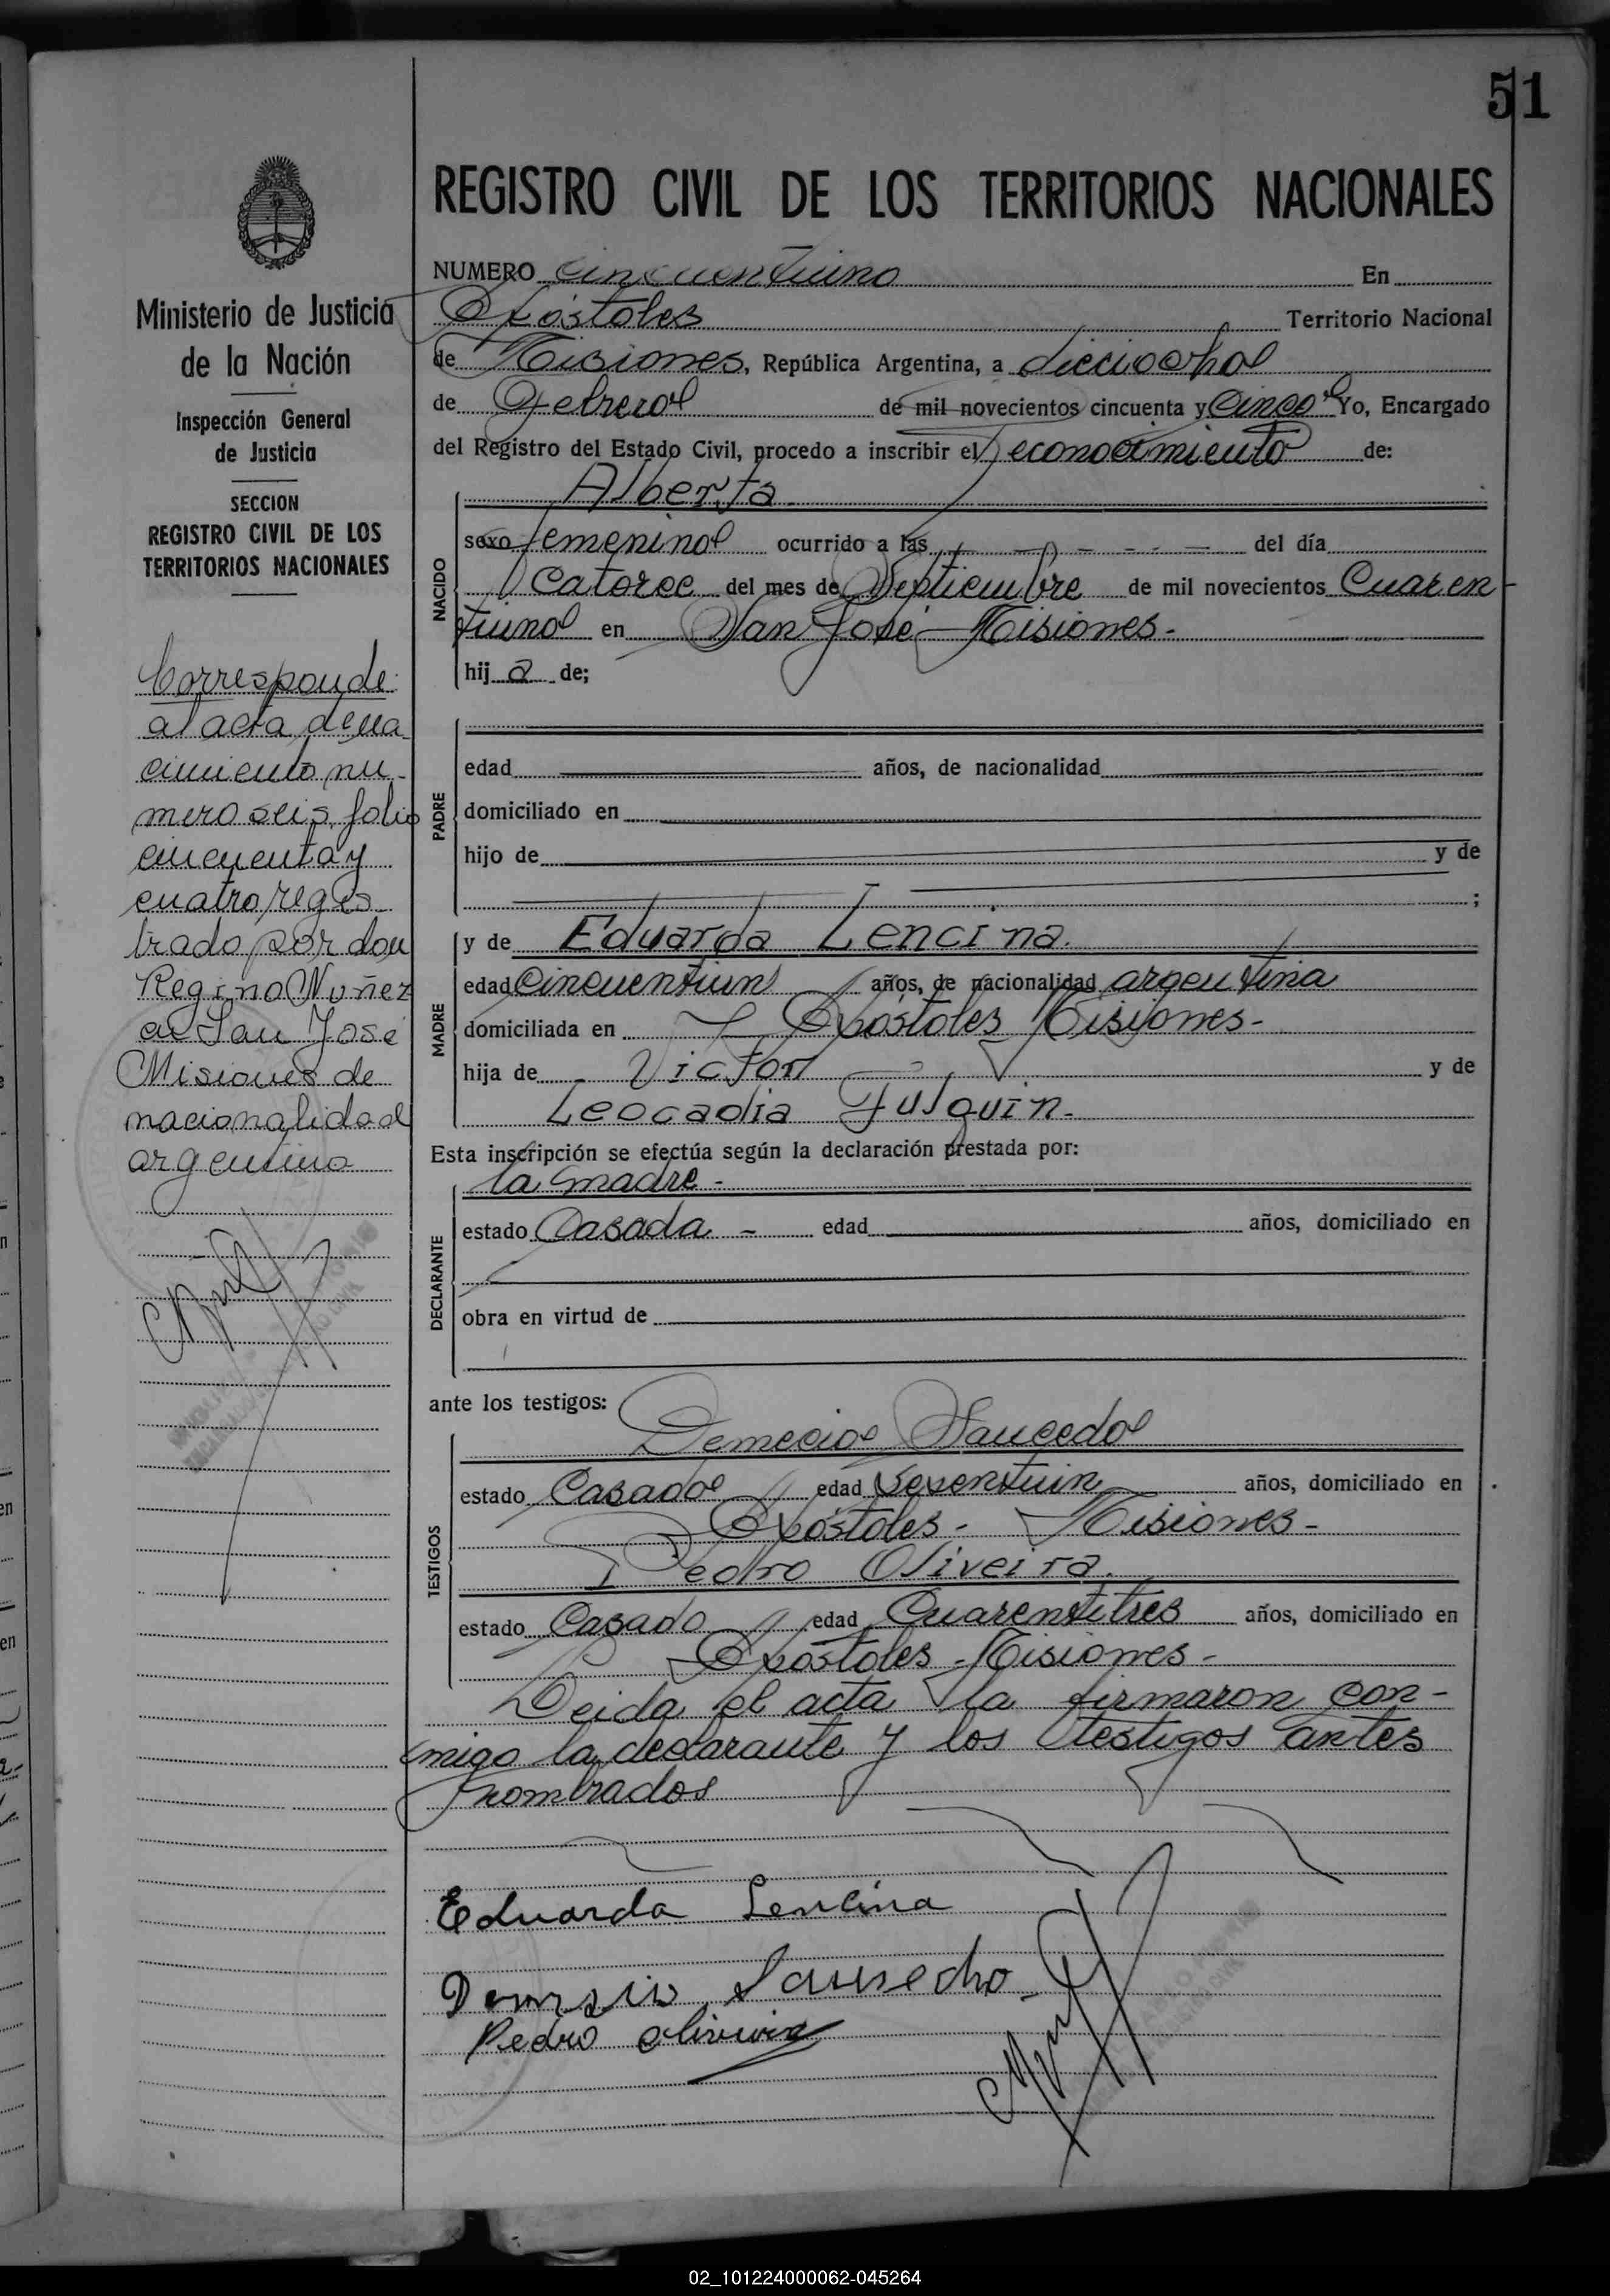 51
REGISTRO CIVIL DE LOS TERRITORIOS NACIONALES
Ministerio de Justicia
de la Nación
Inspección General
de Justicia
SECCION
REGISTRO CIVIL DE LOS
TERRITORIOS NACIONALES
Corresponde
al acta de na
cimiento nu-
mero seis, folio
cincuenta y
cuatro, regis
trado por don
Regino Nuñez
en San José
Misiones de
nacionalidad
argentino
NUMERO cincuentiuno En
Apóstoles Territorio Nacional
de Misiones, República Argentina, a dieciocho
de Febrero de mil novecientos cincuenta y Cinco Yo, Encargado
del Registro del Estado Civil, procedo a inscribir el reconocimiento de:
Alberta
NACIDO
sexo femenino ocurrido a las - - - - - del día
Catorce del mes de Septiembre de mil novecientos Cuaren-
tiuno en San José - Misiones -
hija de;
PADRE
edad años, de nacionalidad
domiciliado en
hijo de y de
;
MADRE
y de Eduarda Lencina.
edad Cincuentiun años, de nacionalidad argentina
domiciliada en Apóstoles Misiones -
hija de Victor y de
Leocadia Fulquin -
Esta inscripción se efectúa según la declaración prestada por:
DECLARANTE
la madre -
estado Casada - edad años, domiciliado en
obra en virtud de
ante los testigos:
TESTIGOS
Demecio Saucedo
estado Casado edad Sesentiun años, domiciliado en
Apóstoles - Misiones -
Pedro Oliveira.
estado Casado edad Cuarentitres años, domiciliado en
Apóstoles - Misiones -
Leida el acta la firmaron con-
migo la declarante y los testigos antes
nombrados
Eduarda Lencina
Demesio Saucedo
Pedro Oliveira
02_101224000062-045264